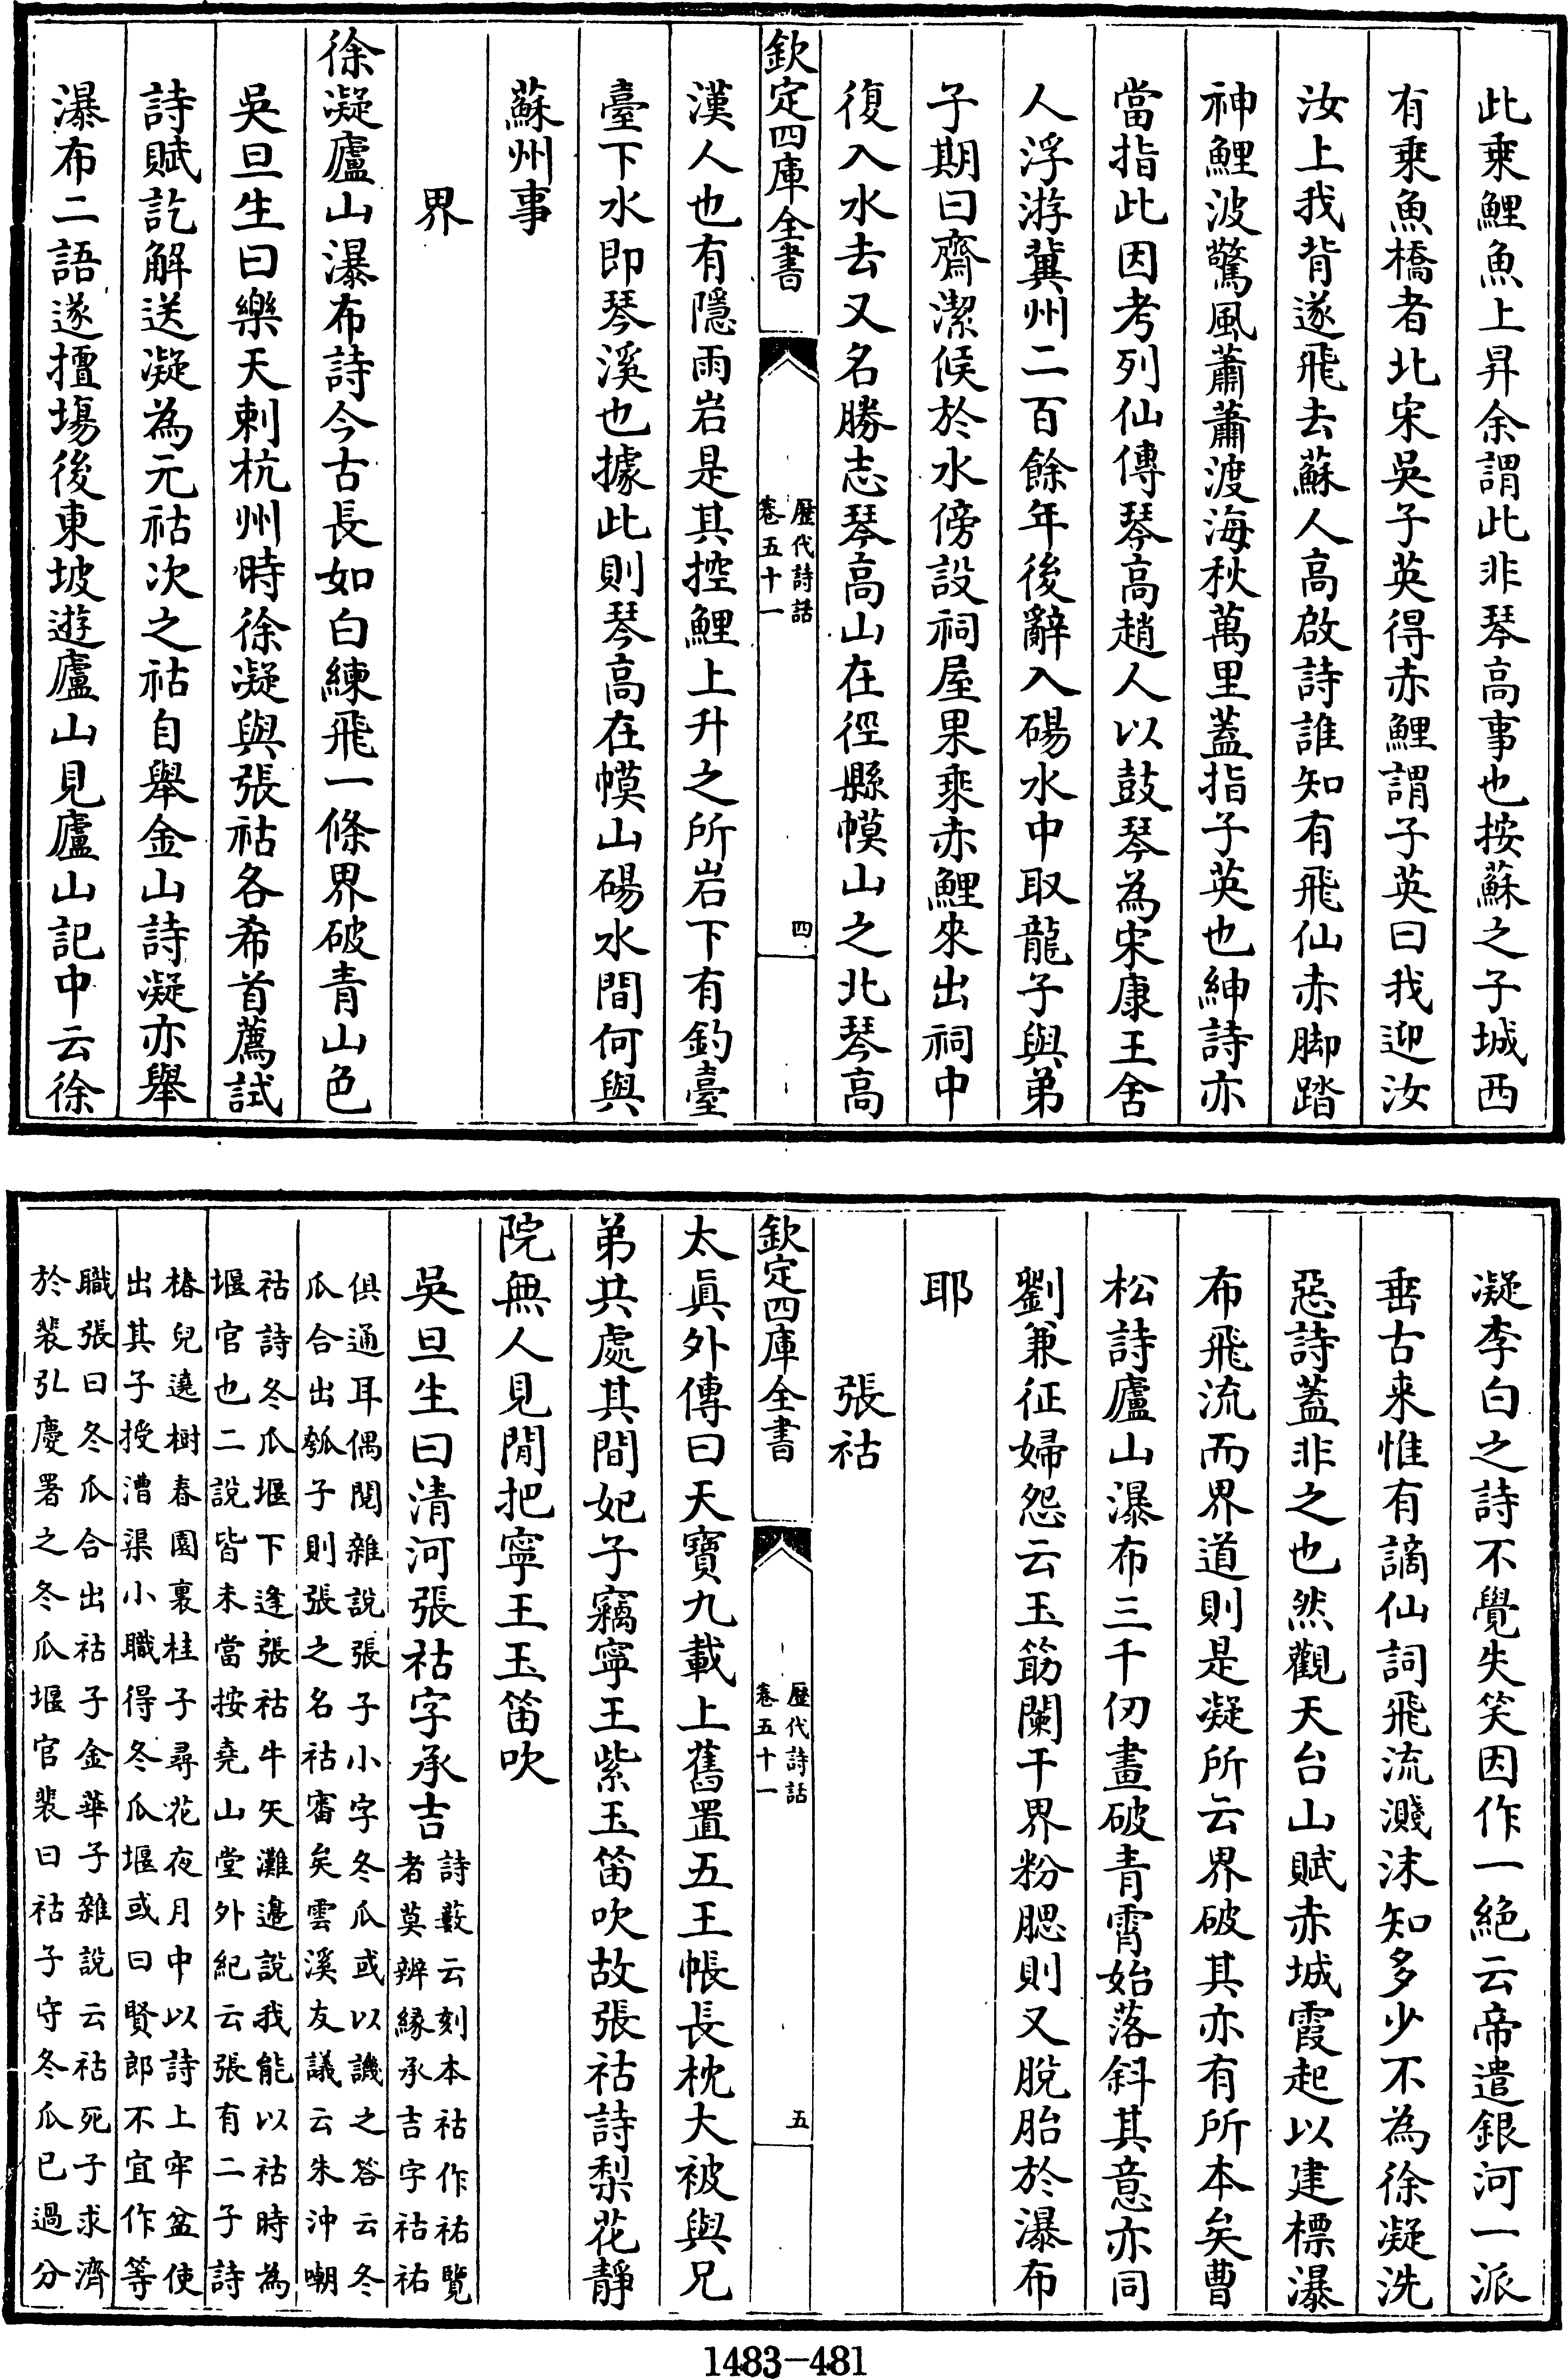 此乘鯉魚上昇余謂此非琴高事也按蘇之子城西
有乘魚橋者北宋吳子英得赤鯉謂子英曰我迎汝
汝上我背遂飛去蘇人高啟詩誰知有飛仙赤脚踏
神鯉波驚風蕭蕭渡海秋萬里蓋指子英也紳詩亦
當指此因考列仙傳琴高趙人以鼓琴為宋康王舍
人浮游冀州二百餘年後辭入碭水中取龍子與弟
子期曰齋潔候於水傍設祠屋果乘赤鯉來出祠中
復入水去又名勝志琴高山在徑縣幙山之北琴高
欽定四庫全書
歴代詩話
卷五十一
四
漢人也有隱雨岩是其控鯉上升之所岩下有釣臺
臺下水即琴溪也據此則琴高在幙山碭水間何與
蘇州事
界
徐凝廬山瀑布詩今古長如白練飛一條界破青山色
吳旦生曰樂天刺杭州時徐凝與張祜各希首薦試
詩賦訖解送凝為元祜次之祜自舉金山詩凝亦舉
瀑布二語遂擅塲後東坡遊廬山見廬山記中云徐
凝李白之詩不覺失笑因作一絶云帝遣銀河一派
垂古来惟有謫仙詞飛流濺沫知多少不為徐凝洗
惡詩蓋非之也然觀天台山賦赤城霞起以建標瀑
布飛流而界道則是凝所云界破其亦有所本矣曹
松詩廬山瀑布三千仞畫破青霄始落斜其意亦同
劉兼征婦怨云玉筯闌干界粉腮則又脫胎於瀑布
耶
張祜
欽定四庫全書
歴代詩話
卷五十一
五
太眞外傳曰天寶九載上舊置五王帳長枕大被與兄
弟共處其間妃子竊寧王紫玉笛吹故張祜詩梨花靜
院無人見閒把寧王玉笛吹
吳旦生曰清河張祜字承吉
詩藪云刻本祜作祐覽
者莫辨緣承吉字祜祐
俱通耳偶閱雜說張子小字冬瓜或以譏之答云冬
瓜合出瓠子則張之名祜審矣雲溪友議云朱沖嘲
祜詩冬瓜堰下逢張祜牛矢灘邉說我能以祜時為
堰官也二說皆未當按堯山堂外紀云張有二子詩
椿兒遶樹春園裏桂子尋花夜月中以詩上牢盆使
出其子授漕渠小職得冬瓜堰或曰賢郎不宜作等
職張曰冬瓜合出祜子金華子雜說云祜死子求濟
於裴弘慶署之冬瓜堰官裴曰祜子守冬瓜已過分
1483-481